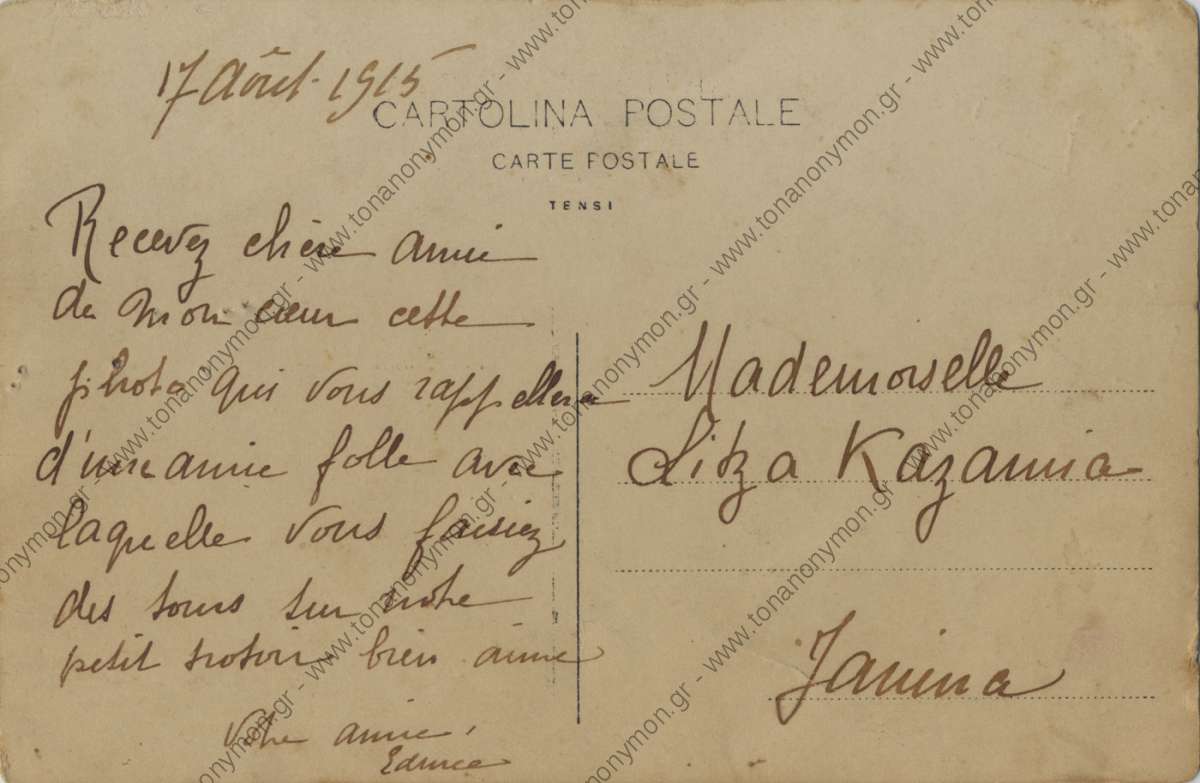 17 Août. 1915
CARTOLINA POSTALE
CARTE POSTALE
TENSI
Recevez chère amie
de mon cœur cette
photo qui vous rappellera
d'une amie folle avec
laquelle vous faisiez
des tours sur notre
petit trotoir bien aimé
Votre amie,
Mademoiselle
Litza Kazamia
Janina
www.tonanonymon.gr - www.tonanonymon.gr - www.tonanonymon.gr